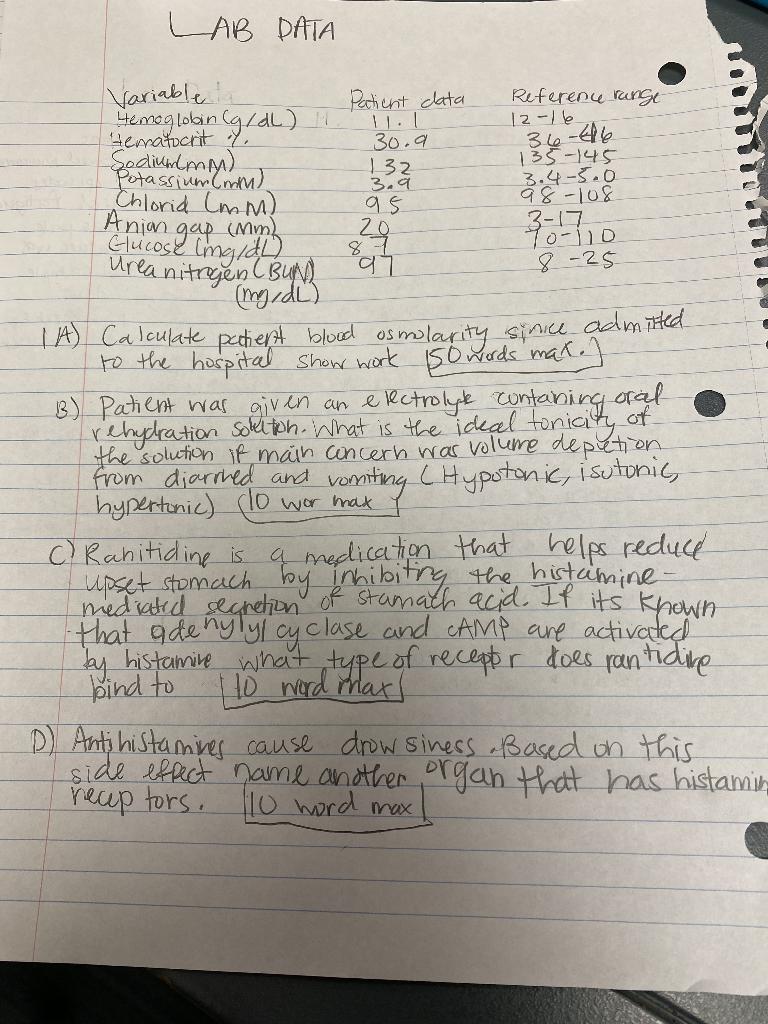 LAB DATA
Variable Patient data Reference range
Hemoglobin (g/dL) 11.1 12-16
Hematocrit %. 30.9 36-46
Sodium(mM) 132 135-145
Potassium(mM) 3.9 3.4-5.0
Chlorid (mM) 95 98-108
Anion gap (Mm) 20 3-17
Glucose (mg/dL) 87 70-110
Urea nitrogen (BUN) 97 8-25
(mg/dL)
1A) Calculate patient blood osmolarity since admitted
to the hospital show work 50 words max.
B) Patient was given an electrolyte contaning oral
rehydration solution. What is the ideal tonicity of
the solution if main concern was volume depletion
from diarrhed and vomiting (Hypotonic, isotonic,
hypertonic) 10 wor max
C) Ranitidine is a medication that helps reduce
upset stomach by inhibiting the histamine-
mediated secretion of stamach acid. If its known
that adenylyl cyclase and cAMP are activated
by histamine what type of receptor does rantidine
bind to 10 word max
D) Antihistamines cause drowsiness. Based on this
side effect name another organ that has histamin
receptors. 10 word max